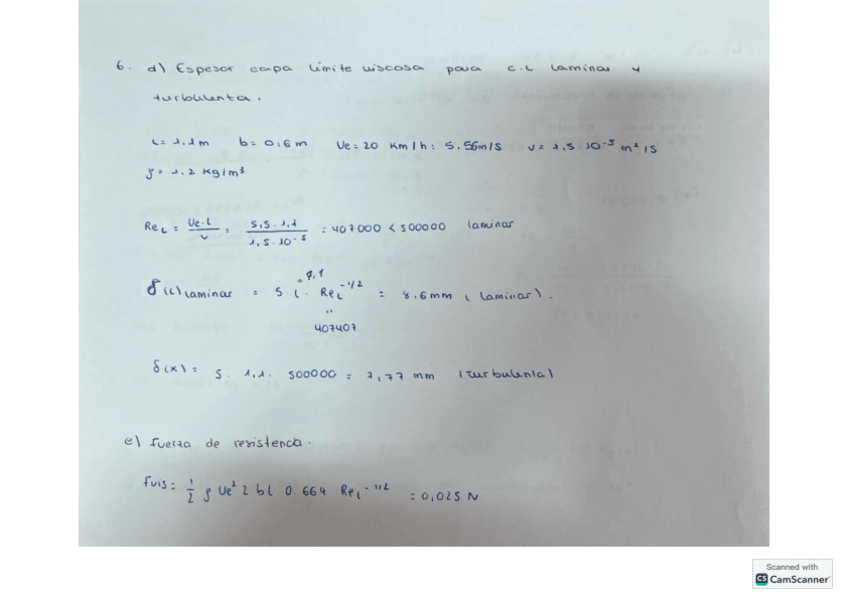 6. d) Espesor capa límite viscosa para c.l laminar y
turbulenta.
L= 1.1m b= 0,6m Ue= 20 Km/h= 5.56m/s ν= 1.5·10⁻⁵ m²/s
ρ= 1.2 Kg/m³
Re_L = Ue·L / ν = 5,5·1,1 / 1,5·10⁻⁵ = 407000 < 500000 laminar
= 1,1
δ(L) laminar = 5·L·Re_L^-1/2 = 8,6mm (laminar).
"
407407
δ(x)= 5. 1,1. 500000 = 7,77 mm (turbulenta)
e) fuerza de resistencia.
Fvis= 1/2 ρ Ue² 2 bL 0.664 Re_L^-1/2 = 0,025 N
Scanned with
CS CamScanner